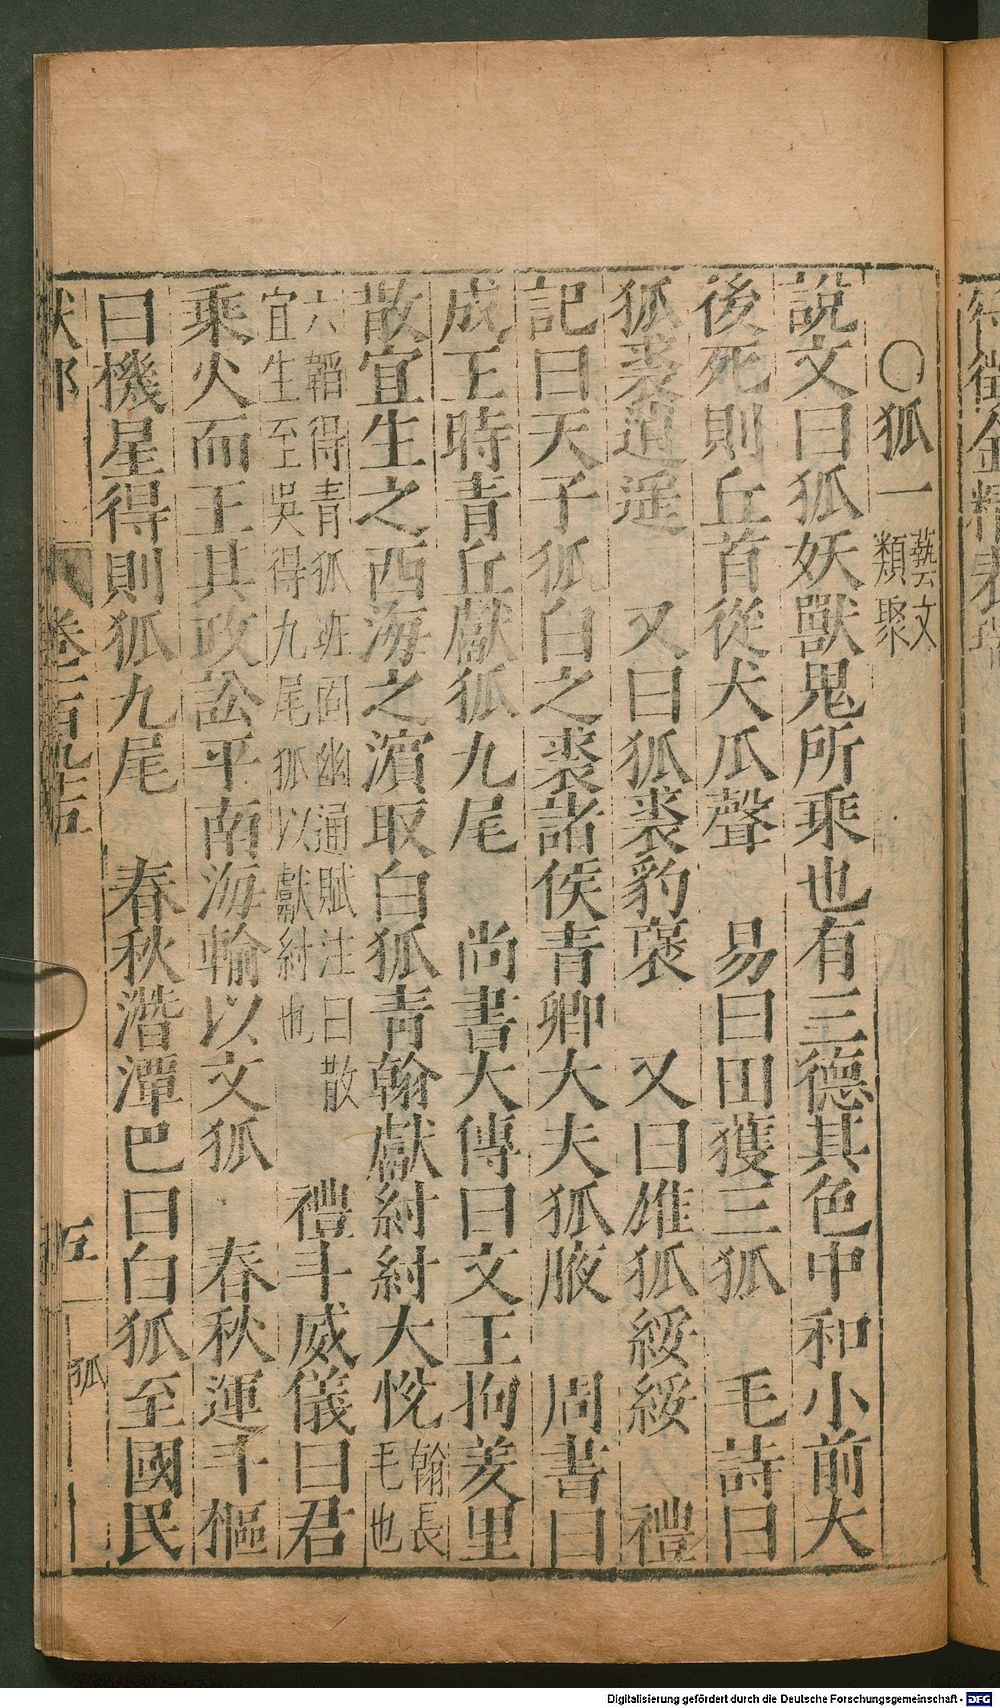 ○狐一 藝文類聚
說文曰狐妖獸鬼所乘也有三德其色中和小前大
後死則丘首從犬瓜聲 易曰田獲三狐 毛詩曰
狐裘逍遥 又曰狐裘豹褎 又曰雄狐綏綏 禮
記曰天子狐白之裘諸侯青卿大夫狐腋 周書曰
成王時青丘獻狐九尾 尚書大傳曰文王拘羑里
散宜生之西海之濵取白狐青翰獻紂紂大恱 翰長毛也
六韜得青狐班固幽通賦注曰散
宜生至吳得九尾狐以獻紂也 禮斗威儀曰君
乘火而王其政訟平南海輸以文狐 春秋運斗樞
曰機星得則狐九尾 春秋潛潭巴曰白狐至國民
卷一百九十五
五
狐
Digitalisierung gefördert durch die Deutsche Forschungsgemeinschaft - DFG